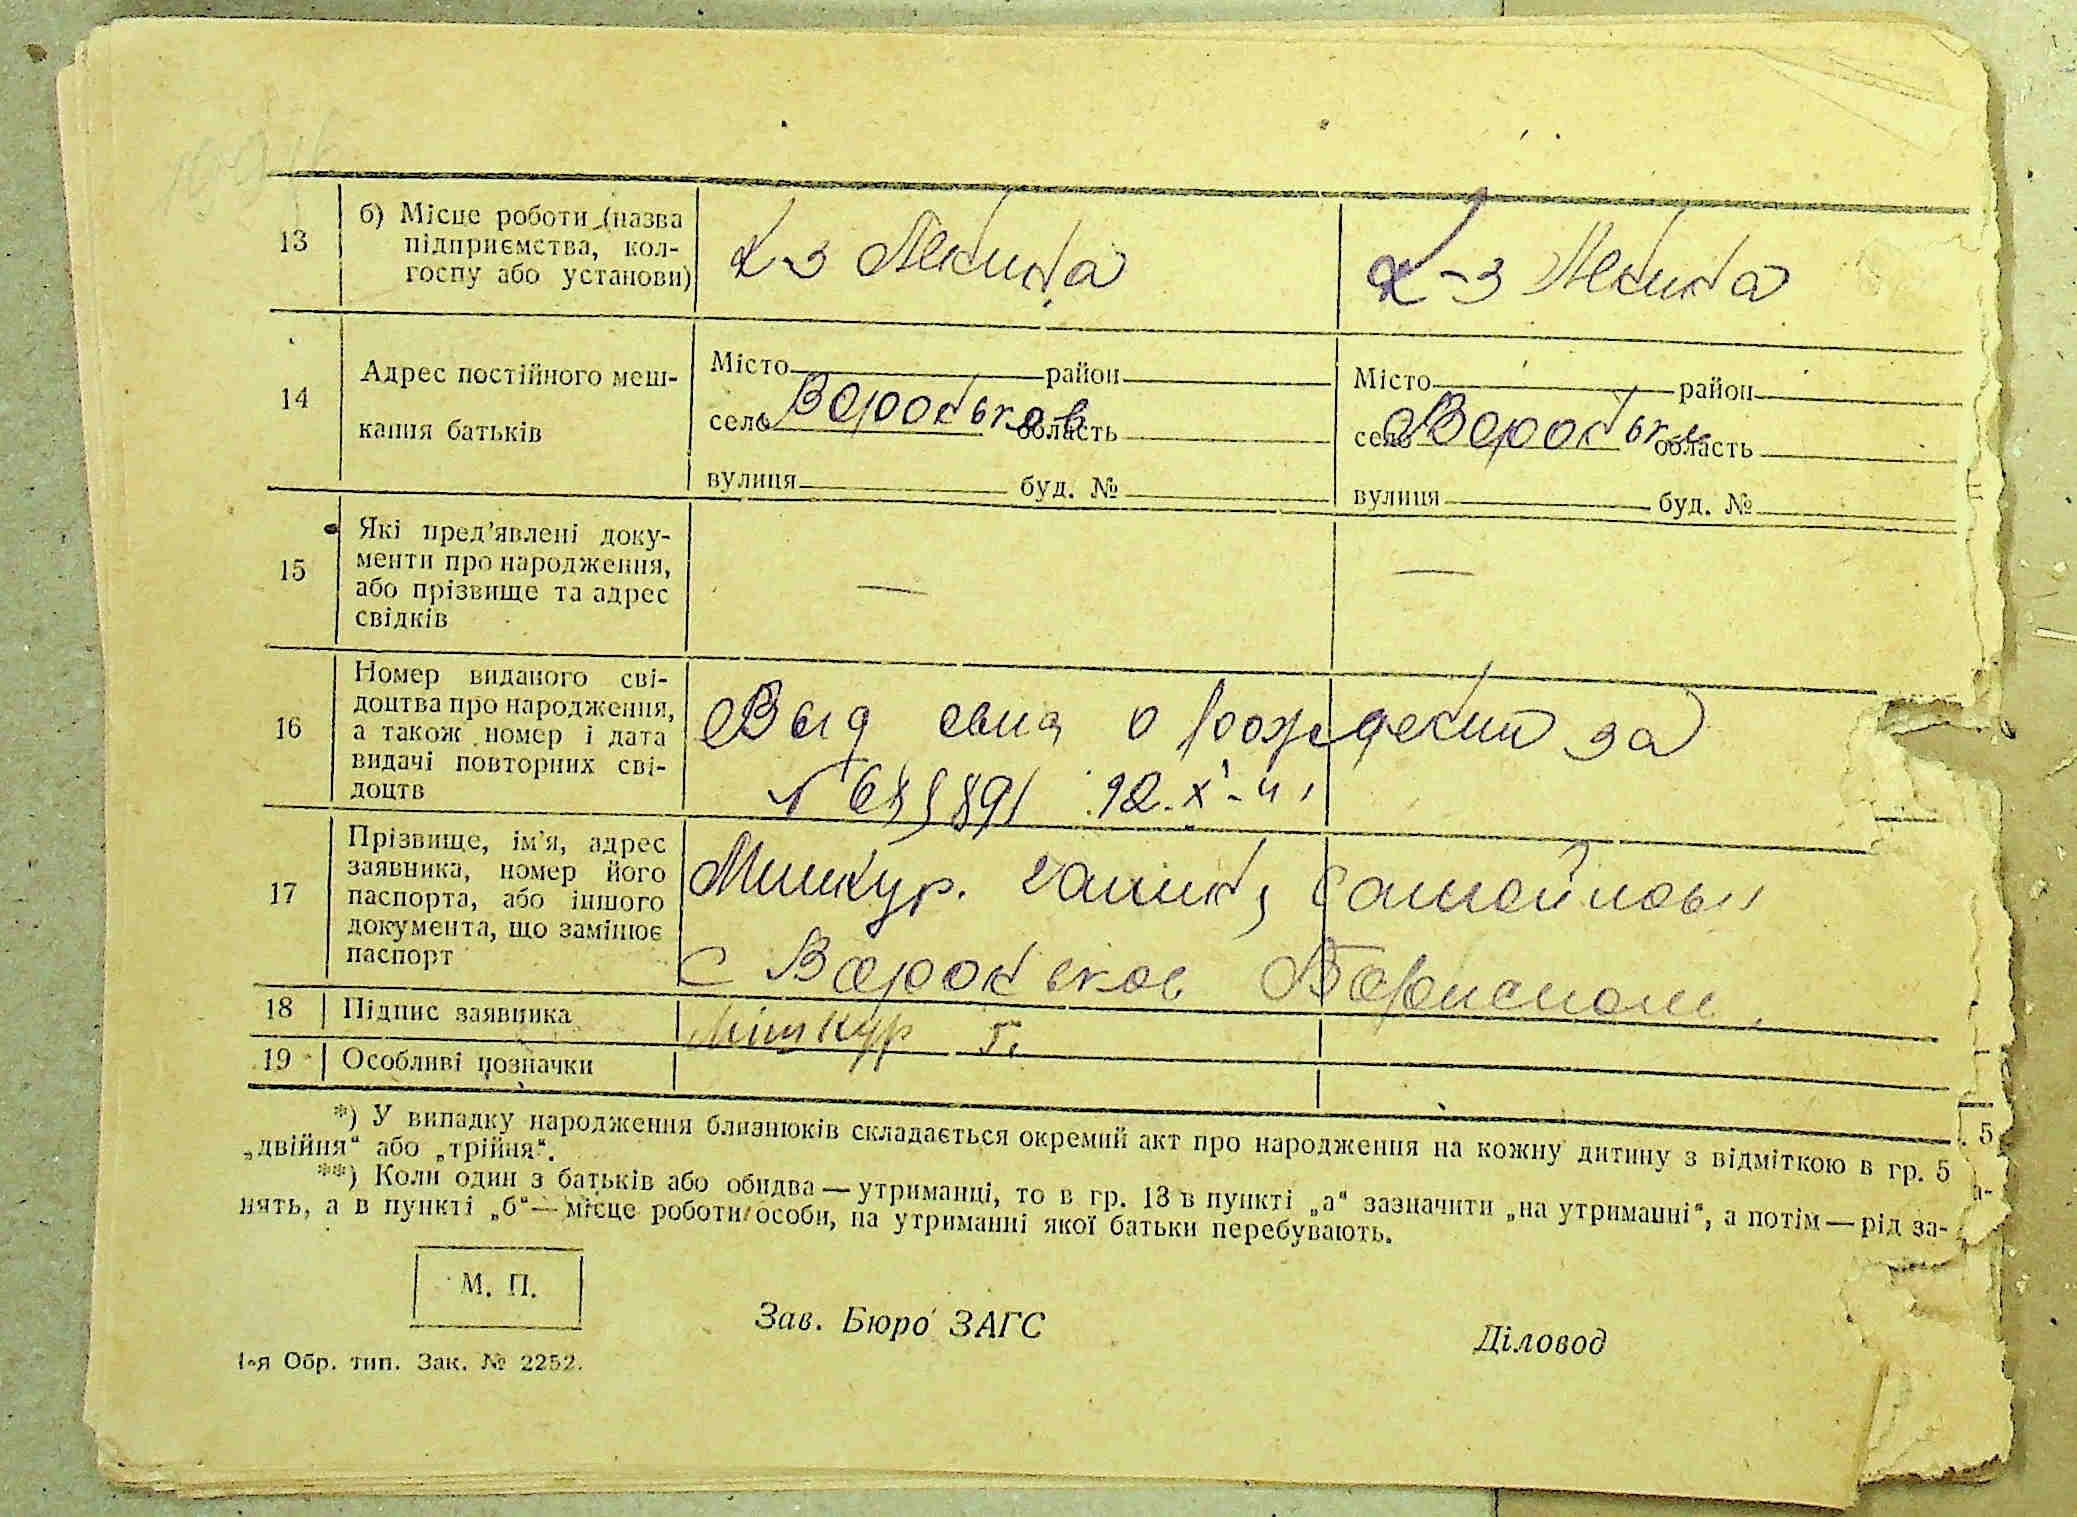 13 б) Місце роботи (назва підприємства, колгоспу або установи) к-з Ленина к-з Ленина
14 Адрес постійного меш-
кання батьків
Місто район Місто район
село Вороньков область село Вороньк область
вулиця буд. № вулиця буд. №
15 Які пред'явлені доку-
менти про народження,
або прізвище та адрес
свідків
— —
16 Номер виданого сві-
доцтва про народження,
а також номер і дата
видачі повторних сві-
доцтв
Выд свид о рождении за
17 Прізвище, ім'я, адрес
заявника, номер його
паспорта, або іншого
документа, що замінює
паспорт
Мишкур.
с Вороньков Бориспол
18 Підпис заявника Мішкур Г.
19 Особливі позначки
*) У випадку народження близнюків складається окремий акт про народження на кожну дитину з відміткою в гр. 5
„двійня“ або „трійня“.
**) Коли один з батьків або обидва — утриманці, то в гр. 13 в пункті „а“ зазначити „на утриманні“, а потім — рід за-
нять, а в пункті „б“ — місце роботи особи, на утриманні якої батьки перебувають.
М. П.
Зав. Бюро ЗАГС Діловод
1-я Обр. тип. Зак. № 2252.